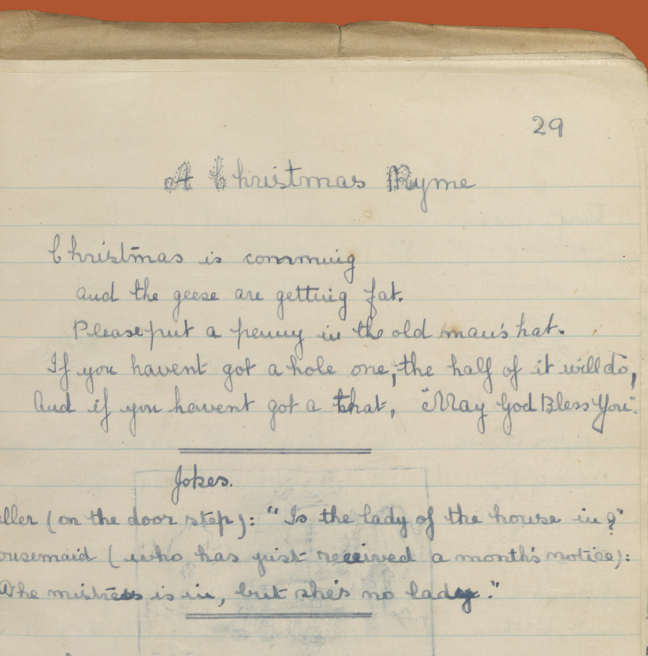 29
A Christmas Ryme
Christmas is comming
and the geese are getting fat.
Please put a penny in the old man's hat.
If you havent got a hole one, the half of it will do,
And if you havent got a that, "May God Bless You".
Jokes.
ller (on the door step): "Is the lady of the house in?"
ousemaid (who has just received a month's notice):
The mistress is in, but she's no lady."